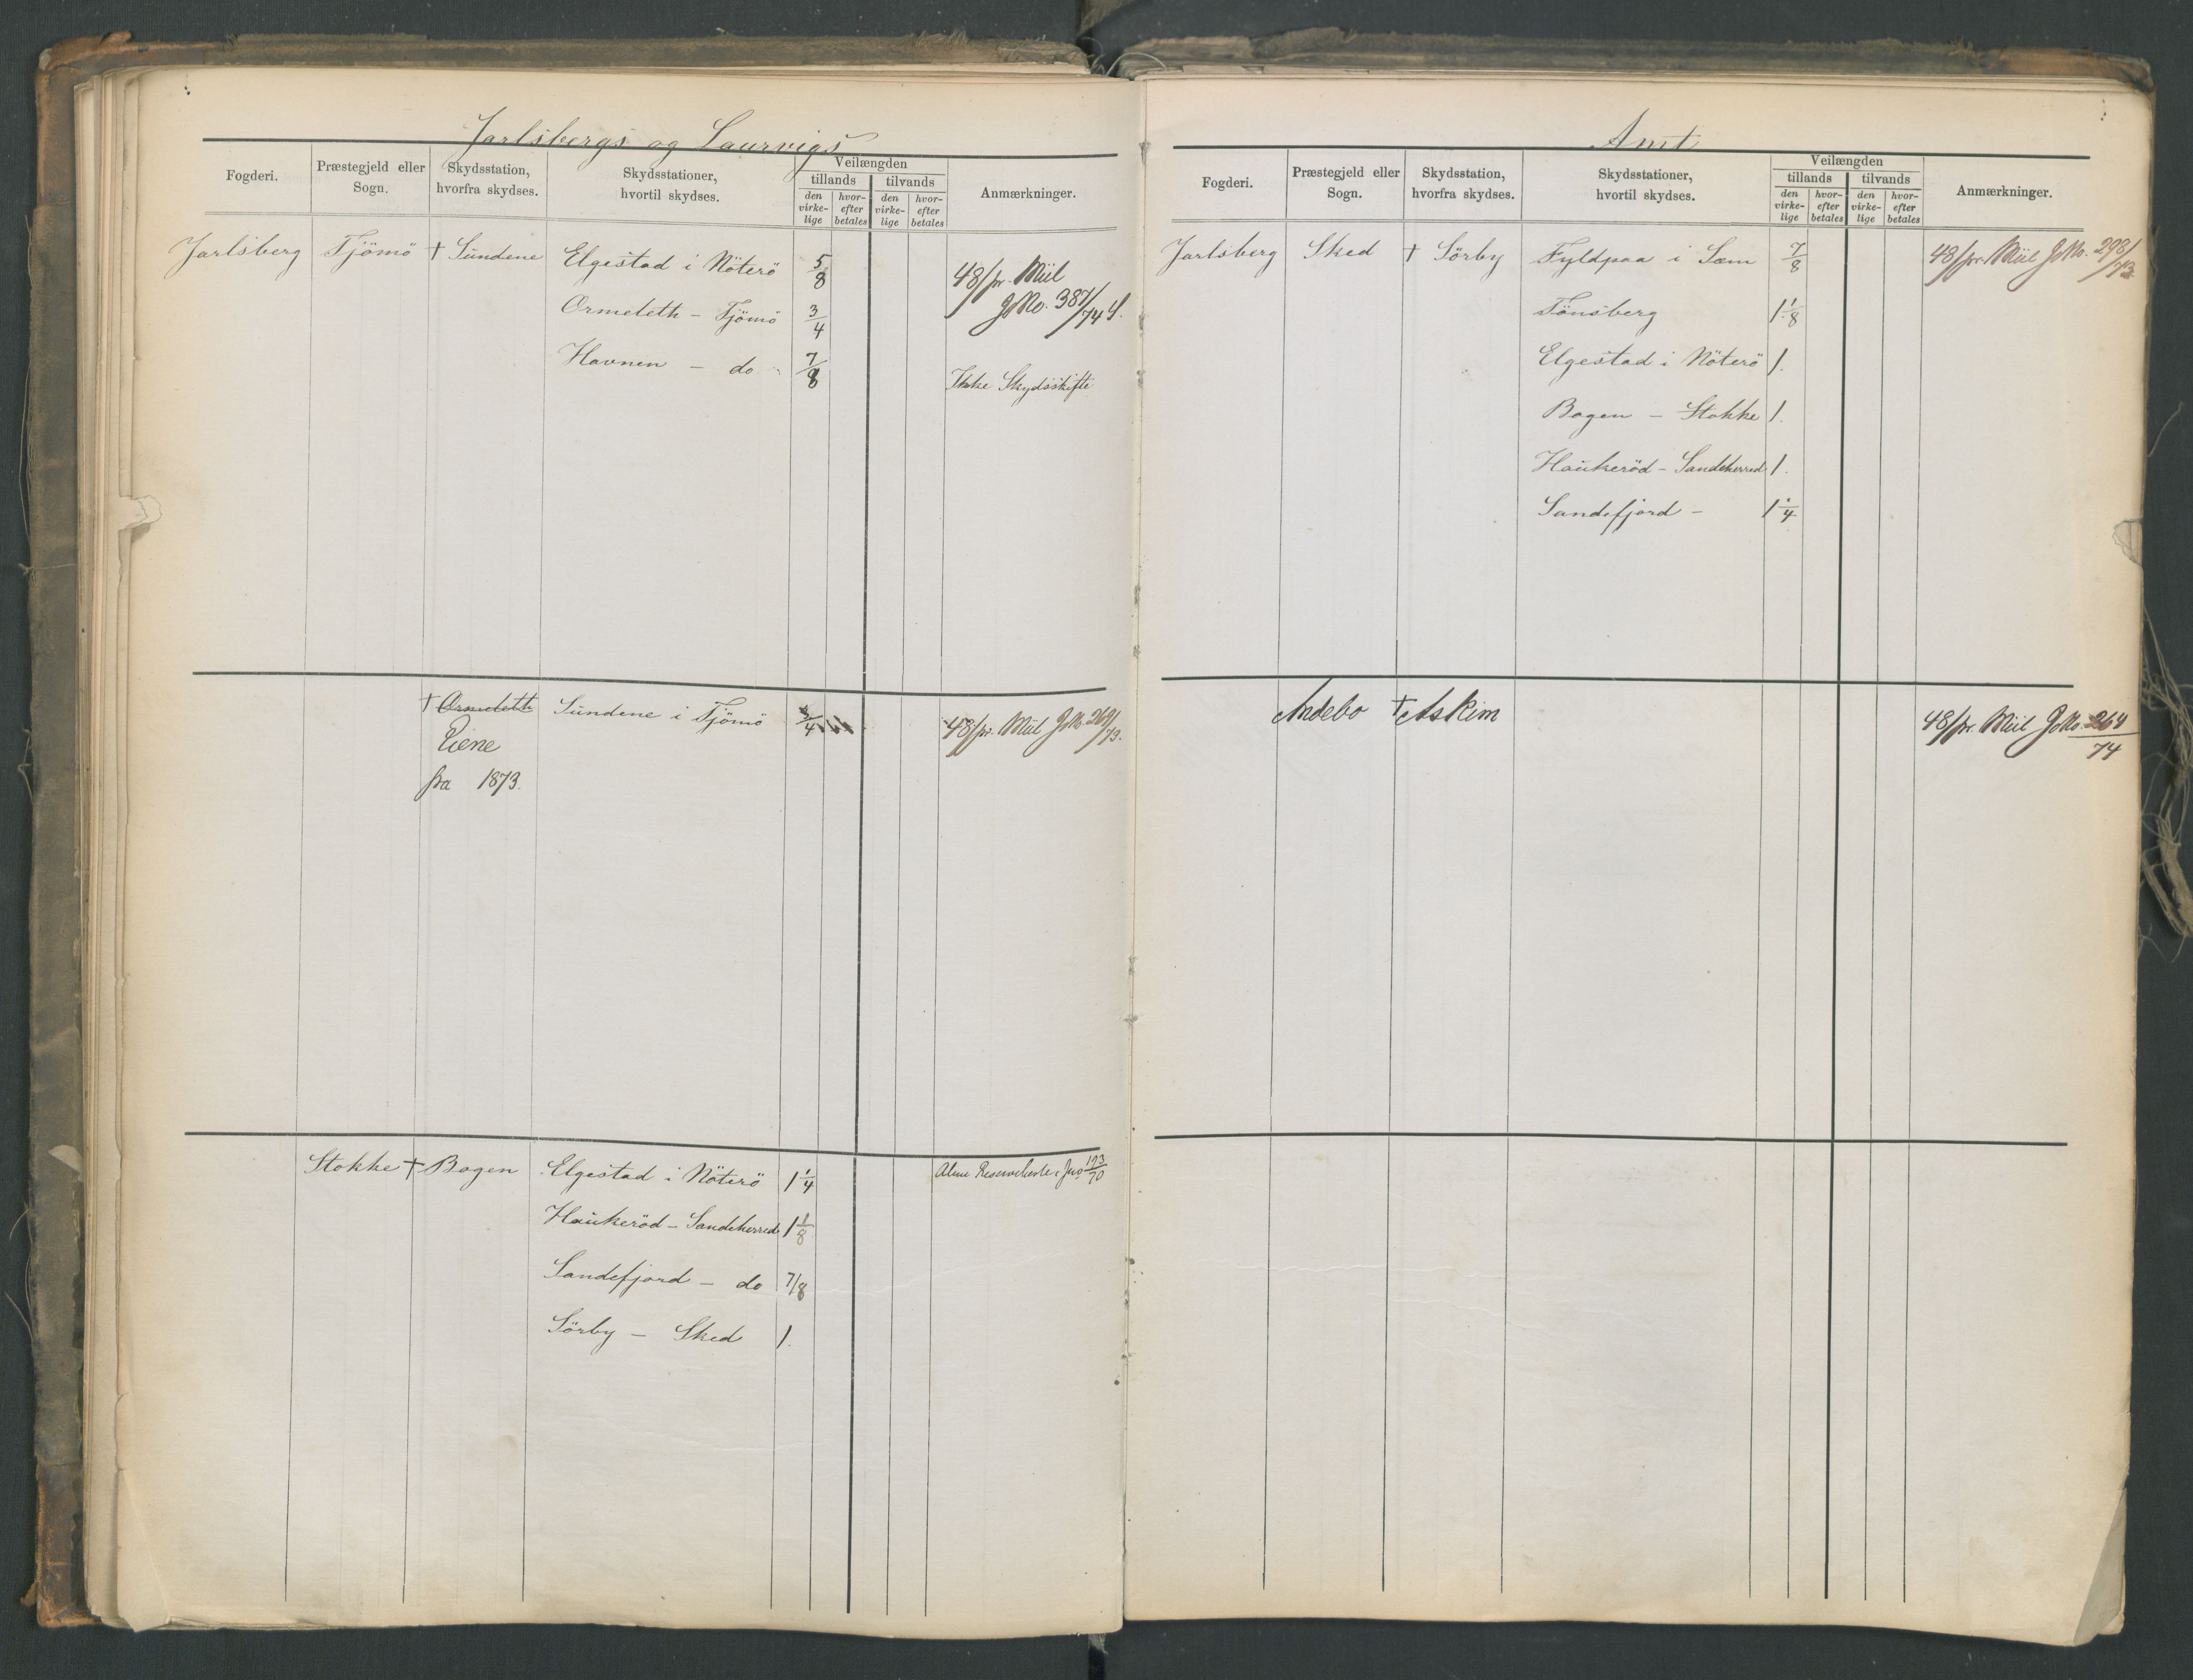 Jarlsbergs og Laurvigs
Fogderi.
Præstegjeld eller
Sogn.
Skydsstation,
hvorfra skydses.
Skydsstationer,
hvortil skydses.
Veilængden
tillands
tilvands
den
virke-
lige
hvor-
efter
betales
den
virke-
lige
hvor-
efter
betales
Anmærkninger.
Jarlsberg Tjömö † Sundene Elgestad i Nöterö 5/8 48/pr. Miil
JNo. 387/74
Ormeleth - Tjömö 3/4
Havnen - do 7/8 Ikke Skydsskifte
† Ormeleth Sundene i Tjömö 3/4 48/pr. Miil JNo 269/73.
Eiene
fra 1873.
Stokke † Bogen Elgestad i Nöterö 1 1/4 Reserveheste, Jno 193/70
Haukeröd - Sandeherred 1 1/8
Sandefjord - do 7/8
Sörby - Sked 1.
Amt
Fogderi.
Præstegjeld eller
Sogn.
Skydsstation,
hvorfra skydses.
Skydsstationer,
hvortil skydses.
Veilængden
tillands
tilvands
den
virke-
lige
hvor-
efter
betales
den
virke-
lige
hvor-
efter
betales
Anmærkninger.
Jarlsberg Sked † Sörby Fyldpaa i Sem 7/8 48/pr. Miil JNo. 298/73
Tönsberg 1 1/8
Elgestad i Nöterö 1.
Bogen - Stokke 1.
Haukeröd - Sandeherred 1.
Sandefjord - 1 1/4
Andebo † Askim 48/pr. Miil JNo. 264/74